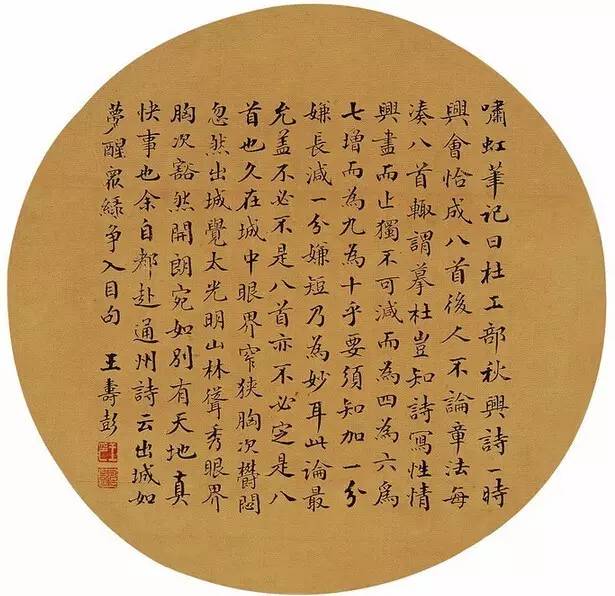 嘯虹筆記曰杜工部秋興詩一時
興會恰成八首後人不論章法每
湊八首輒謂摹杜豈知詩寫性情
興盡而止獨不可減而為四為六為
七增而為九為十乎要須知加一分
嫌長減一分嫌短乃為妙耳此論最
允蓋不必不是八首亦不必定是八
首也久在城中眼界窄狹胸次鬱悶
忽然出城覺太光明山林聳秀眼界
胸次豁然開朗宛如別有天地真
快事也余自都赴通州詩云出城如
夢醒眾綠爭入目句
王壽彭